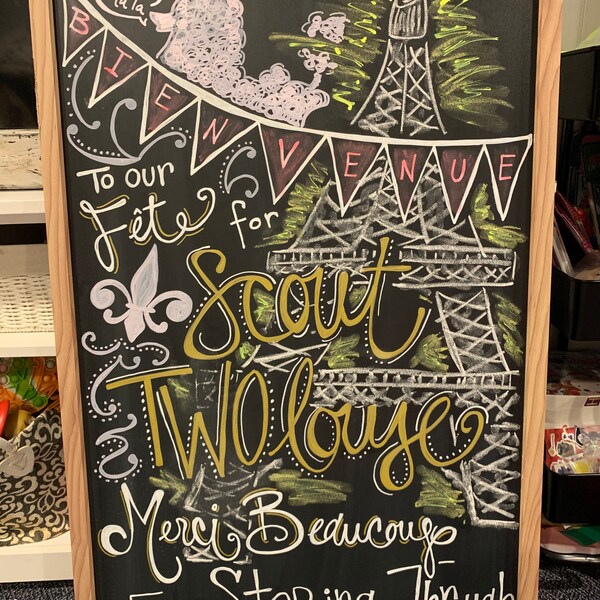 la la
BIENVENUE
To our
Fête for
Scout
TWOlouse
Merci Beaucoup
For Stopping Through